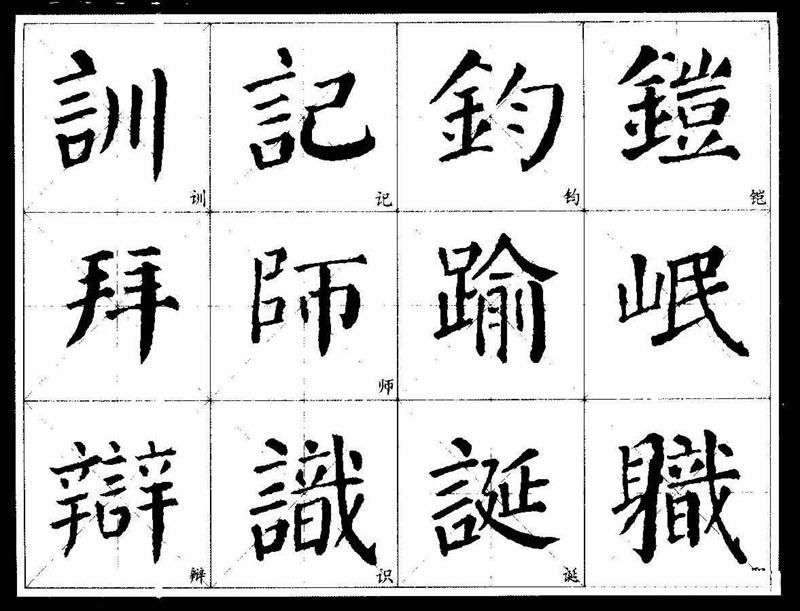 訓 記 鈞 鎧
训 记 钧 铠
拜 師 踰 岷
师
辯 識 誕 軄
辩 识 诞